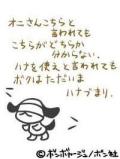 オニさんこちらと
言われても
こちらがどちらか
分からない。
ハナを使えと言われても
ボクはただいま
ハナづまり。
©ボンボヤージュ/ボン社